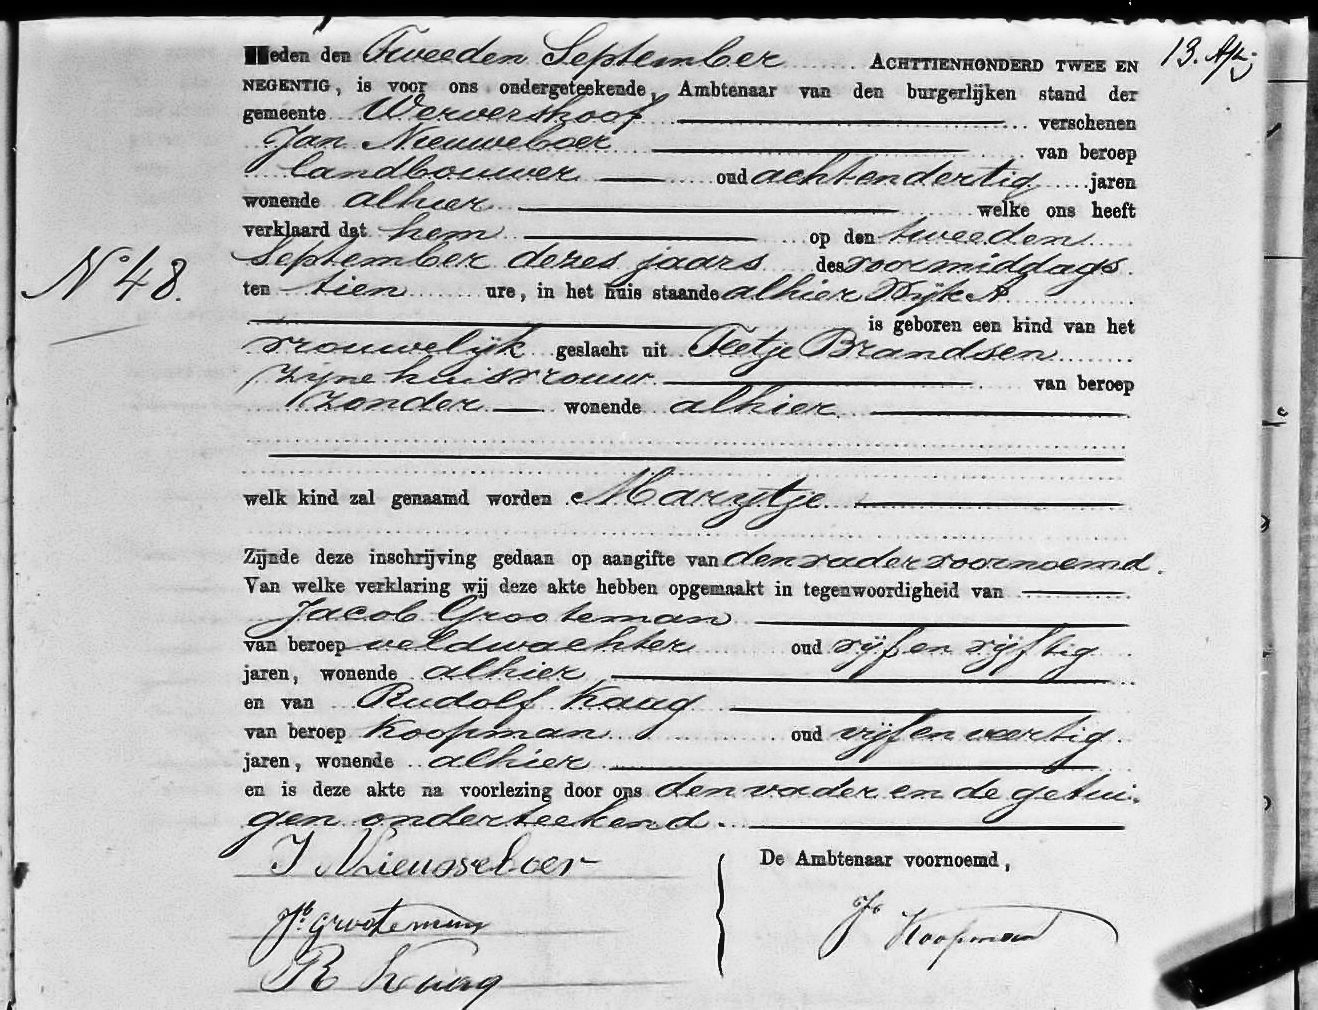 Heden den Tweeden September ACHTTIENHONDERD TWEE EN
NEGENTIG, is voor ons ondergeteekende, Ambtenaar van den burgerlijken stand der
gemeente Wervershoof verschenen
Jan Nieuweboer van beroep
landbouwer oud achtendertig jaren
wonende alhier welke ons heeft
verklaard dat hem op den tweeden
September dezes jaars des voormiddags
ten tien ure, in het huis staande alhier Wijk A
is geboren een kind van het
vrouwelijk geslacht uit Teetje Brandsen
zijne huisvrouw van beroep
zonder wonende alhier
No 48.
welk kind zal genaamd worden Marijtje
Zijnde deze inschrijving gedaan op aangifte van den vader voornoemd.
Van welke verklaring wij deze akte hebben opgemaakt in tegenwoordigheid van
Jacob Grooteman
van beroep veldwachter oud vijf en vijftig
jaren, wonende alhier
en van Rudolf Kaag
van beroep Koopman oud vijf en veertig
jaren, wonende alhier
en is deze akte na voorlezing door ons den vader en de getui-
gen onderteekend.
J Nieuweboer
Jb. Grooteman
R Kaag
De Ambtenaar voornoemd,
Jb Koopman
13.